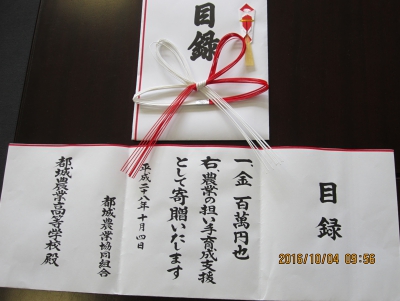 目録
目録
一、金 百萬円也
右、農業の担い手育成支援
として寄贈いたします
平成二十八年十月四日
都城農業協同組合
都城農業高等学校 殿
2016/10/04 09:56